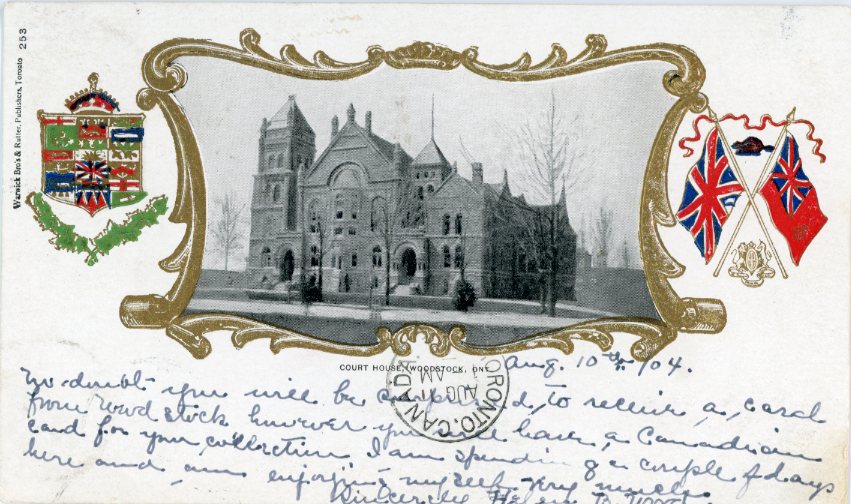 Warwick Bro's & Rutter, Publishers, Toronto 253
COURT HOUSE, WOODSTOCK, ONT.
TORONTO, CANADA
AUG 11
AM
Aug. 10th/04.
No doubt you will be surprised, to receive a card
from Woodstock however you will have a Canadian
card for your collection I am spending a couple of days
here and am enjoying myself very much
Sincerely Helen B.